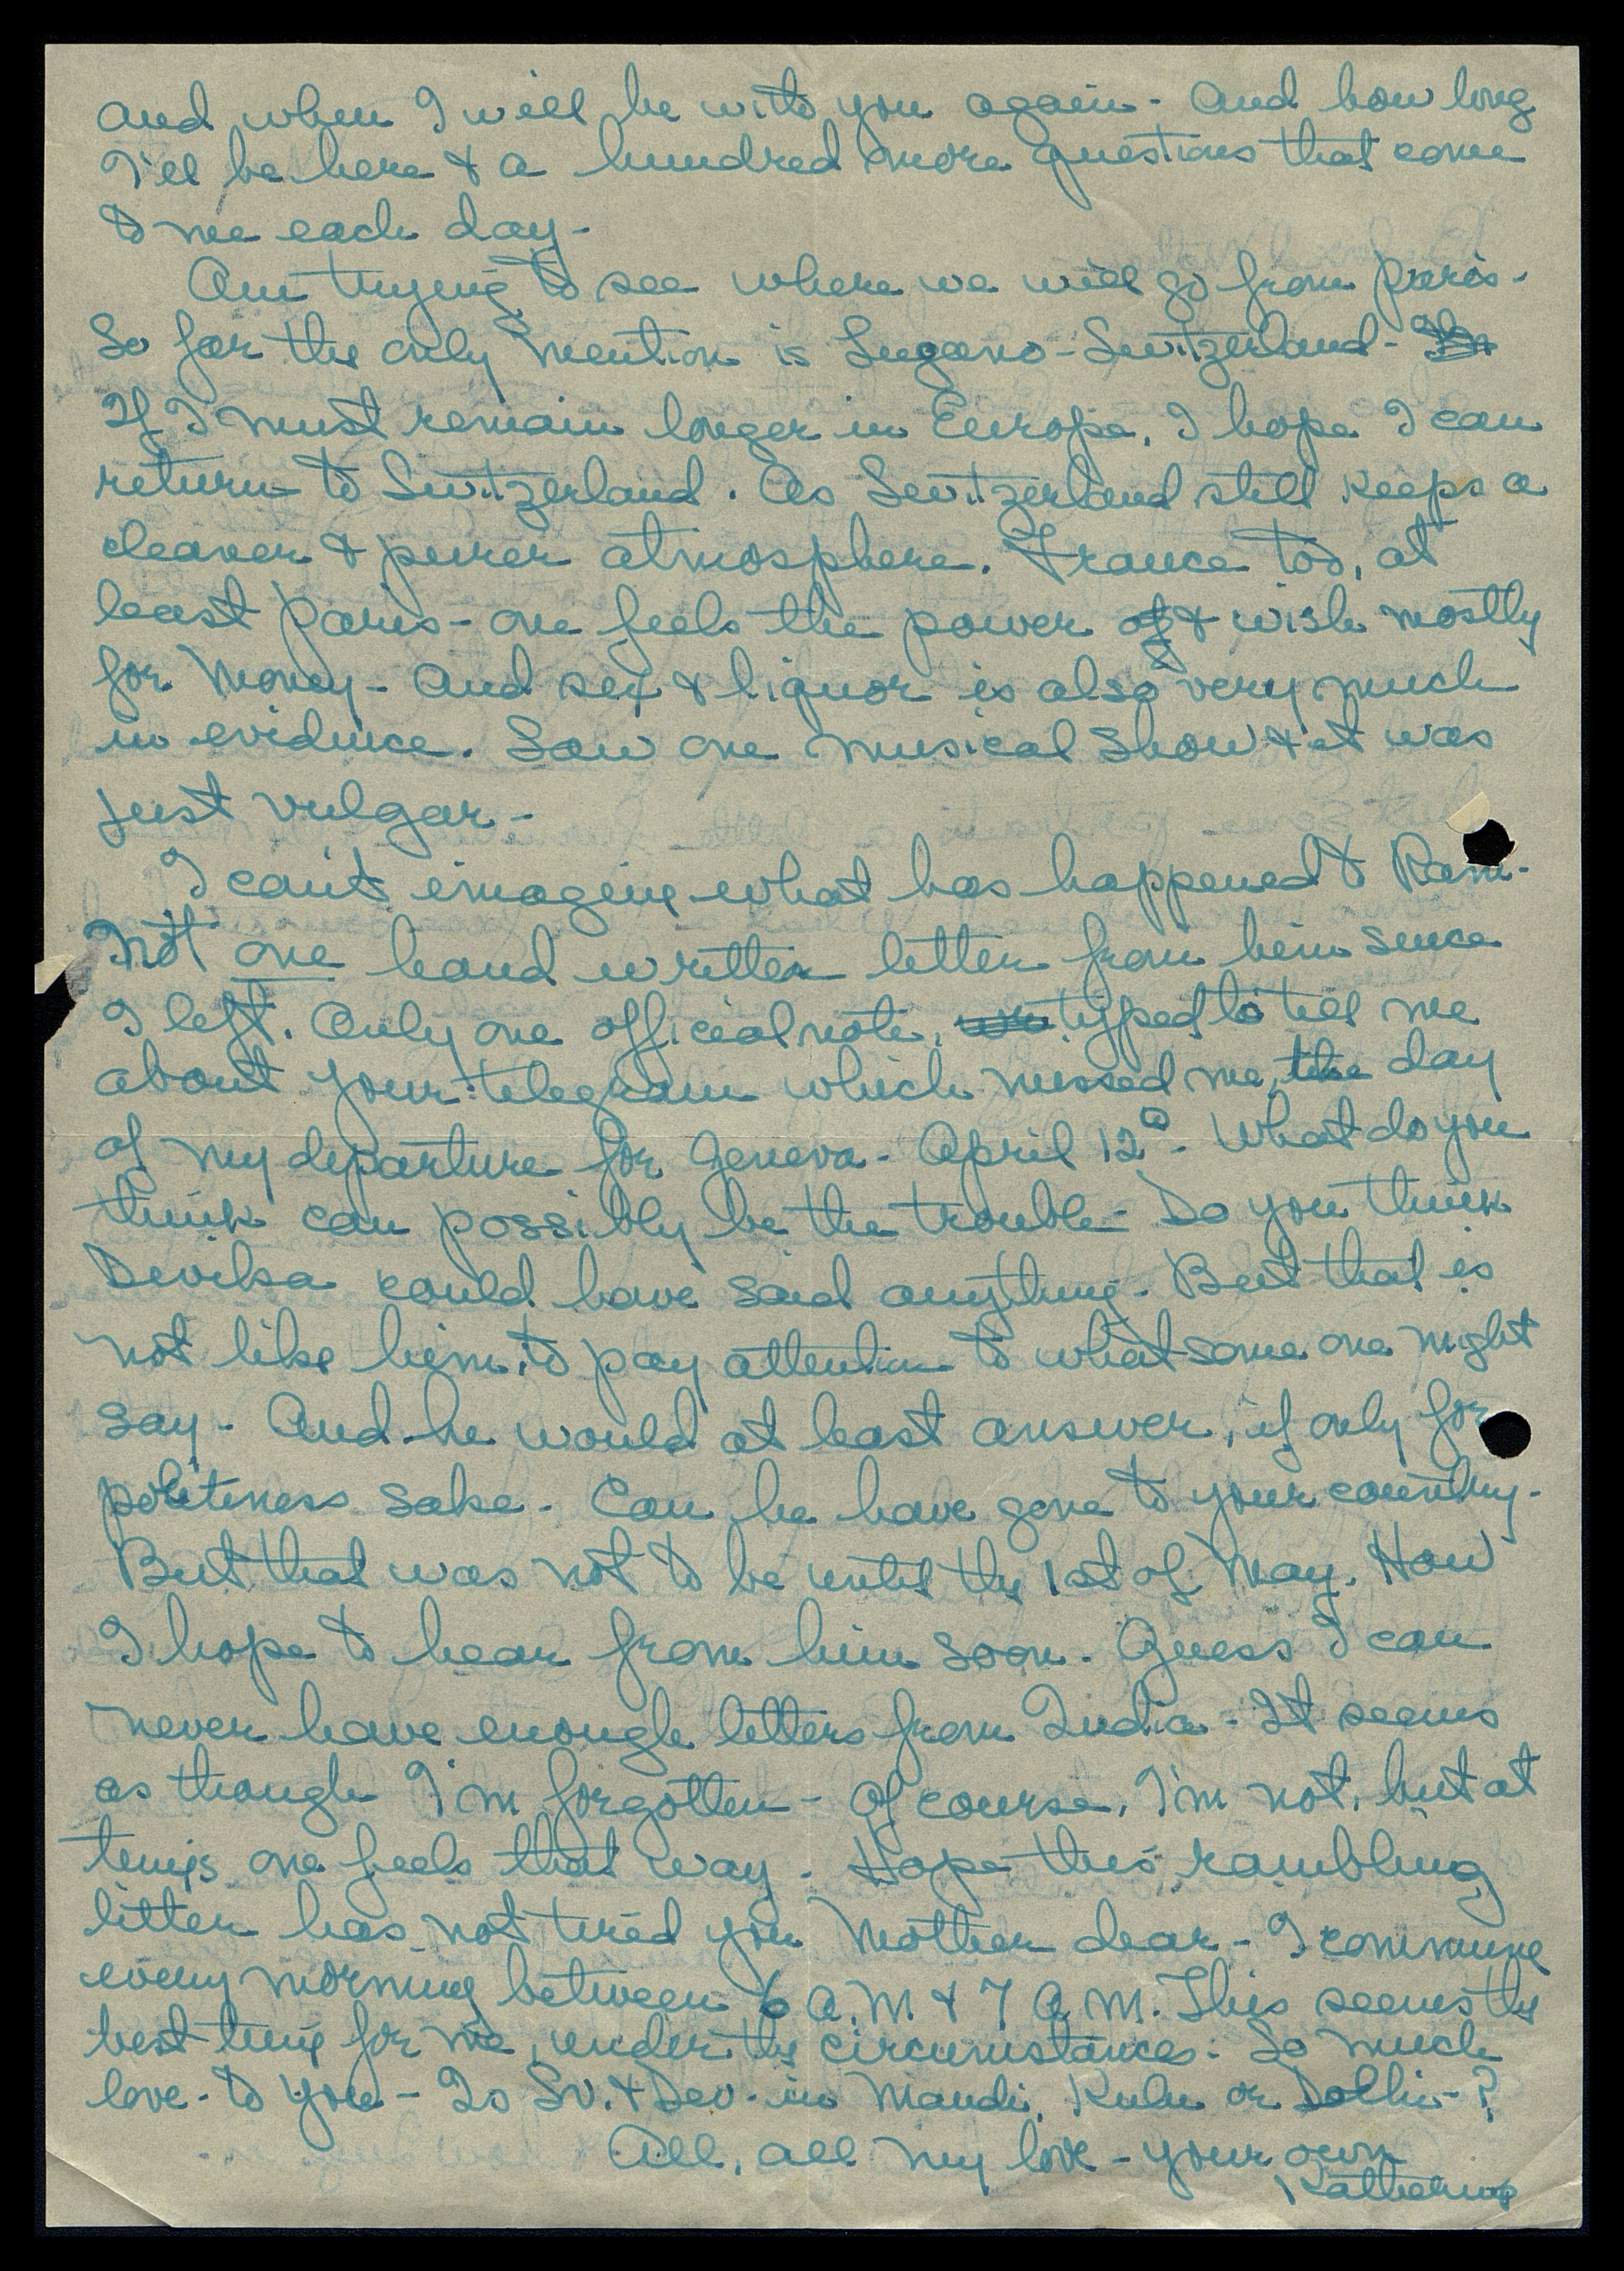 and when I will be with you again - And how long
I'll be here & a hundred more questions that come
to me each day -
Am trying to see where we will go from Paris -
So far the only mention is Lugano - Switzerland -
If I must remain longer in Europe, I hope I can
return to Switzerland. As Switzerland still keeps a
cleaner & purer atmosphere. France too, at
least Paris - one feels the power of & wish mostly
for money - And sex & liquor is also very much
in evidence. Saw one musical show & it was
just vulgar -
I can't imagine what has happened to Ram -
Not one hand written letter from him since
I left. Only one official note, typed to tell me
about your telegram which missed me, the day
of my departure for Geneva - April 12th - What do you
think can possibly be the trouble - Do you think
Devika could have said anything - But that is
not like him, to pay attention to what some one might
say - And he would at least answer, if only for
politeness sake - Can he have gone to your country -
But that was not to be until the 1st of May. How
I hope to hear from him soon. Guess I can
never have enough letters from India - It seems
as though I'm forgotten - Of course, I'm not, but at
times one feels that way. Hope this rambling
letter has not tired you Mother dear - I commune
every morning between 6 A.M. & 7 A.M. This seems the
best time for me, under the circumstances. So much
love - to you - To Sv. & Dev. in Mandi, Kulu or Delhi - ?
All, all my love - your own
Katherine